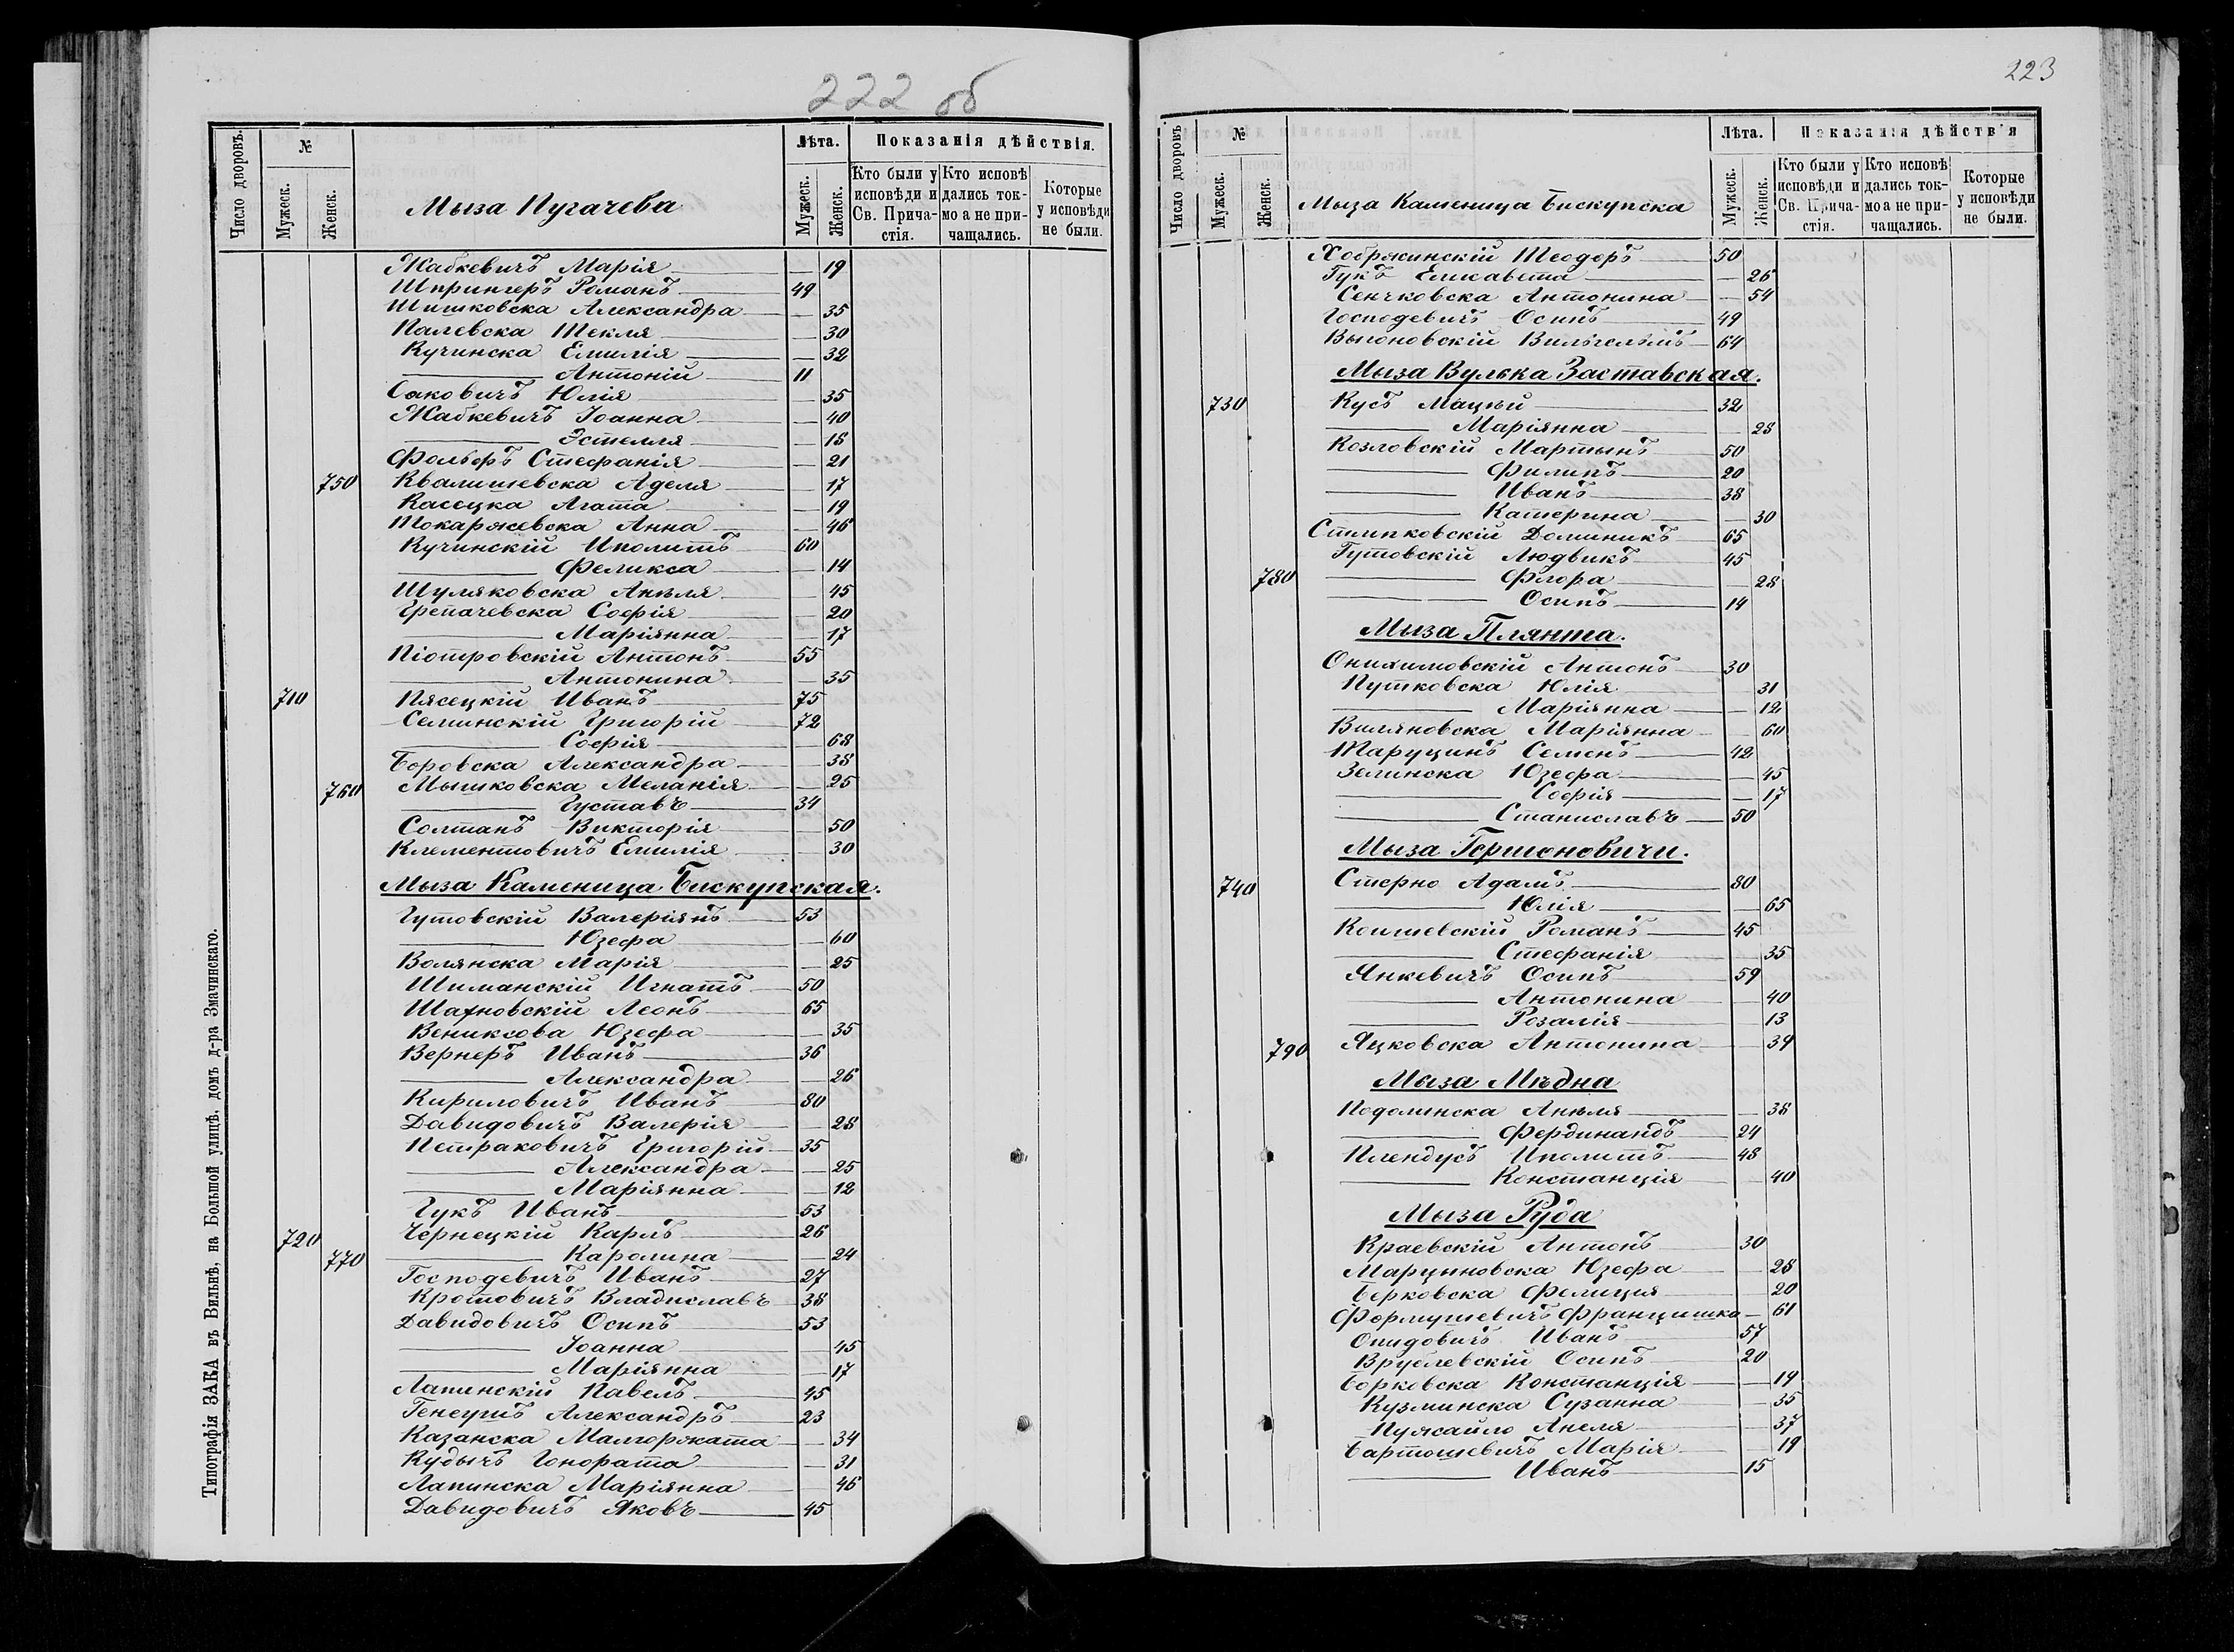 222 об
Число дворовъ.
№
Мужеск.
Женск.
Мыза Пугачева
Лѣта.
Мужеск.
Женск.
Показанія дѣйствія.
Кто были у исповѣди и Св. Причастія.
Кто исповѣдались токмо а не причащались.
Которые у исповѣди не были.
Жабкевичъ Марія — 19
Шпрингеръ Романъ 49
Шишковска Александра — 35
Палевска Текля — 30
Кучинска Емилія — 32
— Антоній 11
Саковичъ Юлія — 35
Жабкевичъ Іоанна — 40
— Эстелля — 18
Фольберъ Стефанія — 21
750 Квалишевска Аделя — 17
Касецка Агата — 19
Токаржевска Анна — 46
Кучинскій Иполитъ 60
— Феликса — 14
Шуляковска Анѣля — 45
Грепачевска Софія — 20
— Маріянна — 17
Піотровскій Антонъ 55
— Антонина — 35
710 Пясецкій Иванъ 75
Семинскій Григорій 72
— Софія — 68
Боровска Александра — 38
760 Мышковска Меланія — 25
— Густавъ 34
Солтанъ Викторія — 50
Клементовичъ Емилія — 30
Мыза Каменица Бискупская.
Гутовскій Валеріянъ 53
— Юзефа — 60
Волянска Марія — 25
Шиманскій Игнатъ 50
Шахновскій Леонъ 65
Вениксова Юзефа — 35
Вернеръ Иванъ 36
— Александра — 26
Кириловичъ Иванъ 80
Давидовичъ Валерія — 28
Петраковичъ Григорій 35
— Александра — 25
— Маріянна — 12
Гукъ Иванъ 53
720 Чернецкій Карлъ 26
770 — Каролина — 24
Господевичъ Иванъ 27
Кротовичъ Владиславъ 38
Давидовичъ Осипъ 53
— Іоанна — 45
— Маріянна — 17
Лапинскій Павелъ 45
Генеушъ Александръ 23
Казанска Малгоржата — 34
Кудычъ Гонората — 31
Лапинска Маріянна — 46
Давидовичъ Яковъ 45
Типографія ЗАКА въ Вильнѣ, на Большой улицѣ, домъ д-ра Змачинскаго.
223
Число дворовъ
№
Мужеск.
Женск.
Мыза Каменица Бискупска
Лѣта.
Мужеск.
Женск.
Показанія дѣйств'я
Кто были у исповѣди и Св. Причастія.
Кто исповѣдались токмо а не причащались.
Которые у исповѣди не были.
Хобржинскій Теодоръ 50
Гукъ Елисавета — 26
Сенчковска Антонина — 54
Господевичъ Осипъ 49
Выгоновскій Вильгельмъ 64
Мыза Вулька Заставская.
730 Кусъ Мацѣй 32
— Маріянна — 28
Козловскій Мартынъ 50
— Филипъ 20
— Иванъ 38
— Катерина — 30
Стыпковскій Доминикъ 65
Гутовскій Людвикъ 45
780 — Флора — 28
— Осипъ 14
Мыза Плянта.
Онихимовскій Антонъ 30
Путковска Юлія — 31
— Маріянна — 12
Виляновска Маріянна — 60
Таруцинъ Семенъ 42
Зелинска Юзефа — 45
— Софія — 17
— Станиславъ 50
Мыза Гершоновичи.
740 Стерно Адамъ 80
— Юлія — 65
Копшевскій Романъ 45
— Стефанія — 35
Янкевичъ Осипъ 59
— Антонина — 40
— Розалія — 13
790 Яцковска Антонина — 39
Мыза Мѣдна
Подолинска Анѣля — 38
— Фердинандъ 24
Плендусъ Иполитъ 48
— Констанція — 40
Мыза Руда
Краевскій Антонъ 30
Марцыновска Юзефа — 28
Берковска Фелиция — 20
Формушевичъ Францишка — 61
Опидовичъ Иванъ 57
Врублевскій Осипъ 20
Борковска Констанція — 19
Кузминска Сузанна — 35
Пужайло Анеля — 37
Бартошевичъ Марія — 19
— Иванъ 15